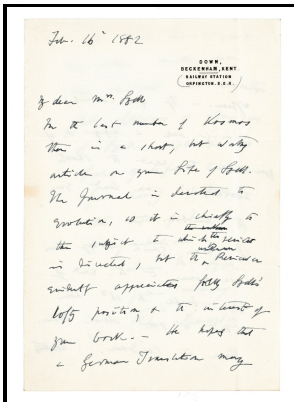 Feb. 16 1882
DOWN,
BECKENHAM, KENT
RAILWAY STATION
ORPINGTON. S.E.R.
My dear Mrs. Lyell
In the last number of Kosmos
there is a short, but
article on your Life of Lyell.
The Journal is devoted to
Evolution, so it is chiefly to
this subject to which the
is directed, but the Reviewer
evidently appreciates fully Lyell's
lofty position, & the interest of
your book. — He hopes that
a German Translation may